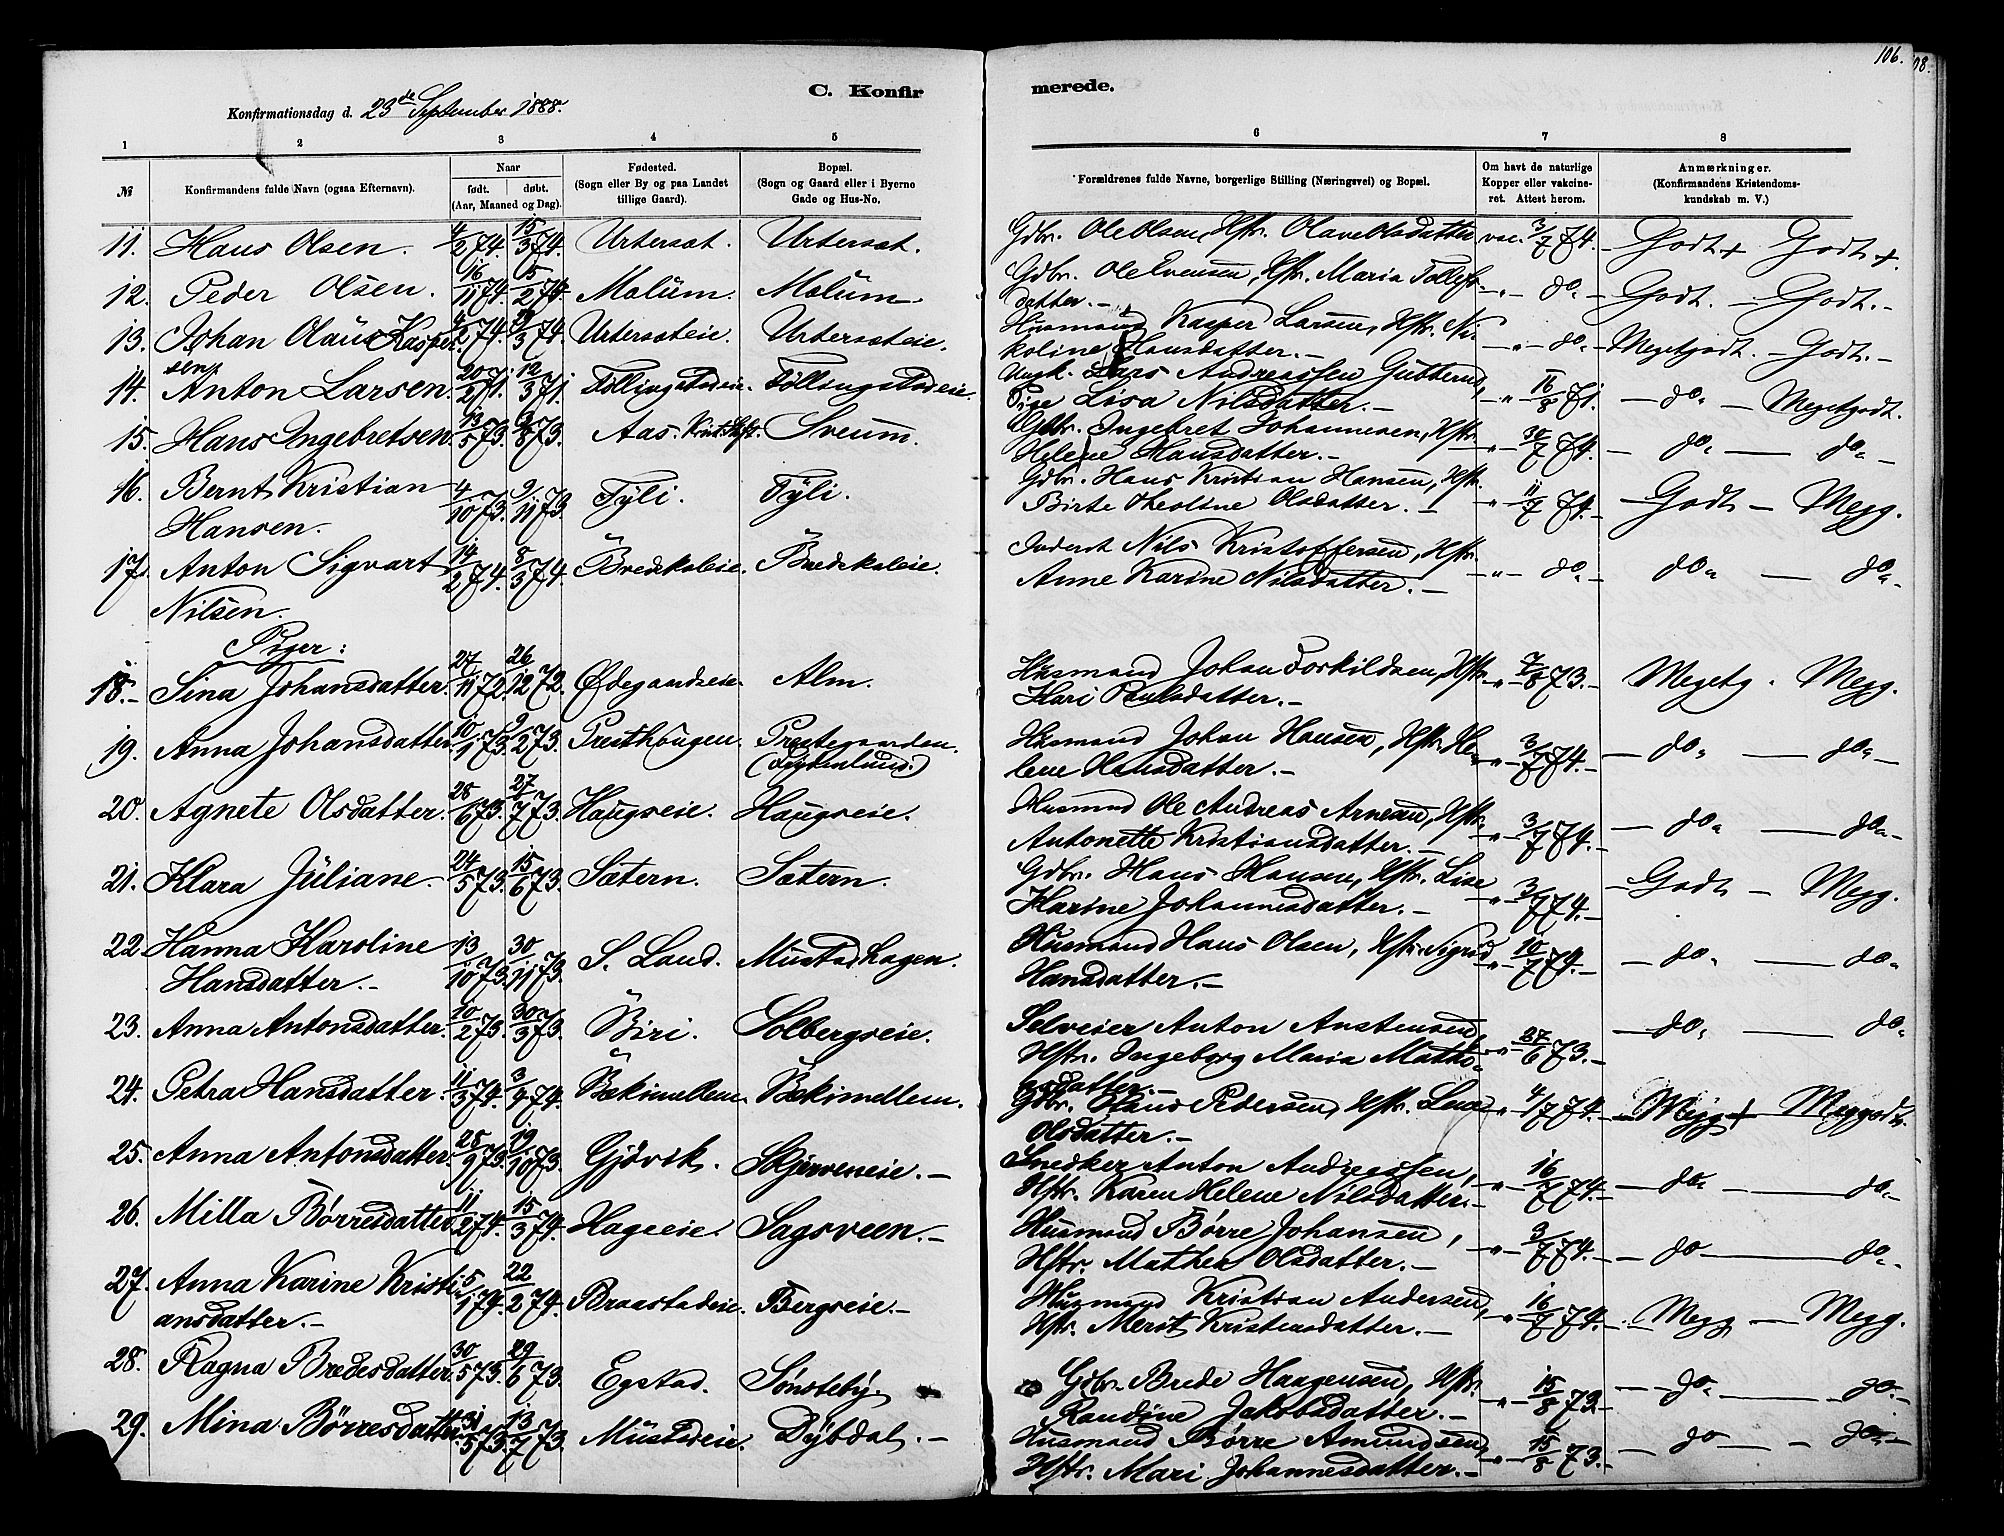 106.
08.
C. Konfir
merede.
Konfirmationsdag d. 23de September 1888.
1 2 3 4 5 6 7 8
№ Konfirmandens fulde Navn (ogsaa Efternavn). Naar født. døbt. (Aar, Maaned og Dag). Fødested. (Sogn eller By og paa Landet tillige Gaard). Bopæl. (Sogn og Gaard eller i Byerne Gade og Hus-No. Forældrenes fulde Navne, borgerlige Stilling (Næringsvei) og Bopæl. Om havt de naturlige Kopper eller vakcineret. Attest herom. Anmærkninger. (Konfirmandens Kristendomskundskab m. V.)
11. Hans Olsen. 4/2 74. 15/3 74. Urtersat. Urtersat. Gdbr. Ole Olsen, Hstr. Olave Olsdatter vac. 3/7 74. Godt + Godt +.
12. Peder Olsen. 16/11 74. 15/2 74. Malum. Malum. Gdbr. Ole Evensen, Hstr. Maria Tollefs-
datter. — " — do — Godt. — Godt. —
13. Johan Olaus Kasper- 4/2 74. /3 74. Urtersateie. Urtersateie. Husmand Kasper Larsen, Hstr. Ni-
sen. koline Hansdatter. — " — do — Megetgodt. — Godt. —
14. Anton Larsen. 20/2 71. 12/3 71. Föllingstadeie. Föllingstadeie. Ungk. Lars Andreassen Gutterud,
Pige Lisa Nilsdatter. — " — 16/8 71. — do — Megetgodt.
15. Hans Ingebretsen. 13/5 73. /8 73. Aas, Sveum. Ingebret Johannesen, Hstr.
Helene Hansdatter. — " — 30/7 74. — do — do —
16. Bernt Kristian 4/10 73. 9/11 73. Tyli. Tyli. Gdbr. Hans Kristian Hansen, Hstr.
Hansen. Birte Theoline Olsdatter. — " — 11/7 74. — Godt — Megg.
17. Anton Sigvart 14/2 74. 8/3 74. Bredskaleie. Bredskaleie. Inderst Nils Kristoffersen, Hstr.
Nilsen. Anne Karine Nilsdatter. — " — do — do — do —
Piger:
18. Sina Johansdatter. 27/11 72. 26/12 72. Ødegaardseie. Alm. Husmand Johan Torkildsen, Hstr.
Kari Paulsdatter. — " — 7/8 73. — Megetg. Megg.
19. Anna Johansdatter. 10/1 73. 9/2 73. Presthougen. Prestegaarden. Husmand Johan Hansen, Hstr. He-
lene Hansdatter. — " — 3/7 74. — do — do —
20. Agnete Olsdatter. 28/6 73. 27/7 73. Haugseie. Haugseie. Husmand Ole Andreas Arnesen, Hstr.
Antonette Kristiansdatter. — " — 3/7 74. — do — do —
21. Klara Juliane. 24/5 73. 15/6 73. Sætern. Sætern. Gdbr. Hans Hansen, Hstr. Lise
Karine Johannesdatter. — " — 3/7 74. — Godt — Megg.
22. Hanna Karoline 13/10 73. 30/11 73. S. Land. Mustadhagen. Husmand Hans Olsen, Hstr. Sigrid
Hansdatter. — Hansdatter. — " — 10/7 74. — do — do —
23. Anna Antonsdatter. 10/2 73. 30/3 73. Biri. Solbergseie. Selveier Anton Anstensen,
Hstr. Ingeborg Maria Mathi-
asdatter. — " — 27/6 73. — do — do —
24. Petra Hansdatter. 11/3 74. 3/4 74. Bækimellem. Bækimellem. Gdbr. Hans Pedersen, Hstr. Lene
Olsdatter. — " — 4/7 74. — Megg + Meggodt.
25. Anna Antonsdatter. 28/9 73. 19/10 73. Gjøvik. Skjerveneie. — Snedker Anton Andreassen,
Hstr. Karen Helene Nilsdatter. — " — 16/7 74. — do — do —
26. Milla Børresdatter. 11/2 74. 15/3 74. Hageeie. Sagsveen. — Husmand Børre Johansen,
Hstr. Mathea Olsdatter. — " — 3/7 74. — do — do —
27. Anna Karine Kristi- 5/1 74. 22/2 74. Braastadeie. Bergseie. — Husmand Kristian Andersen,
ansdatter. — Hstr. Merit Kristensdatter. — " — 16/7 74. — Megg — Megg.
28. Ragna Bredesdatter. 30/5 73. 29/6 73. Egstad. Sønsteby. Gdbr. Brede Haagensen, Hstr.
Randine Jakobsdatter. — " — 15/8 73. — do — do —
29. Mina Børresdatter. 31/5 73. 13/7 73. Mustadeie. Dybdal. — Husmand Børre Amundsen,
Hstr. Mari Johannesdatter. — " — 15/8 73. — do — do —